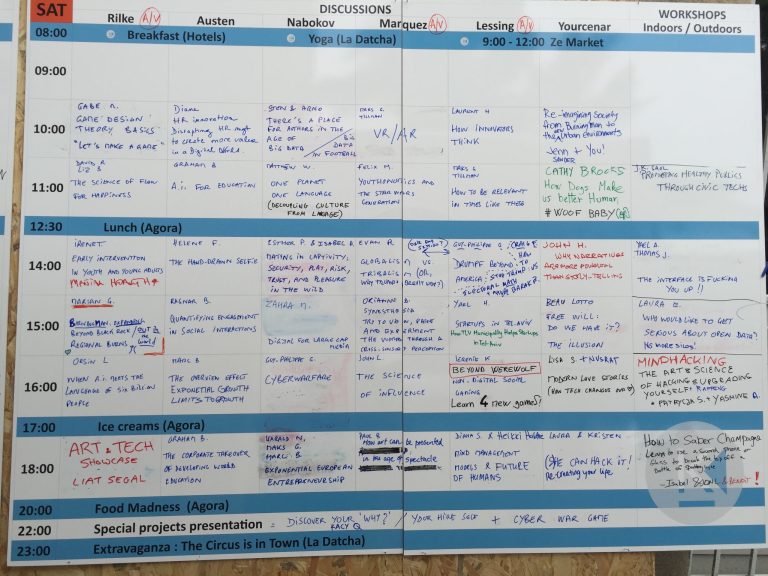 SAT
DISCUSSIONS
WORKSHOPS
Indoors / Outdoors
Rilke A/V
Austen
Nabokov
Marquez A/V
Lessing A/V
Yourcenar
08:00
Breakfast (Hotels)
Yoga (La Datcha)
9:00 - 12:00 Ze Market
09:00
10:00
GABE
GAME DESIGN
THEORY BASICS
"LET'S MAKE A GAME"
Diane
HR innovation
Disrupting HR mgt
to create more value
in a Digital
STEN & ARNO
THERE'S A PLACE
FOR AUTHORS IN THE
AGE OF
BIG DATA
BIG
DATA
IN FOOTBALL
TILLMAN
VR/AR
LAURENT H
HOW INNOVATORS
THINK
Re-imagining Society
from Burning Man to
Urban Environments
Jenn + You!
SANDER
11:00
DAVID R
LIZ S
THE SCIENCE OF FLOW
FOR HAPPINESS
GRAHAM B
A.I. FOR EDUCATION
MATTHEW W.
ONE PLANET
ONE LANGUAGE
(DECOUPLING CULTURE
FROM
FELIX M.
YOUTHQUOTICS AND
THE STAR WARS
GENERATION
TILLMAN
HOW TO BE RELEVANT
IN TIMES LIKE THESE
CATHY BROOKS
How Dogs Make
us better Human
# WOOF BABY
PROMOTING HEALTHY PUBLICS
THROUGH CIVIC TECHS
12:30
Lunch (Agora)
14:00
EARLY INTERVENTION
IN YOUTH AND YOUNG ADULTS
HELENE F.
THE HAND-DRAWN SELFIE
ESTHER P & ISABEL
DATING IN CAPTIVITY:
SECURITY, PLAY, RISK,
TRUST, AND PLEASURE
IN THE WILD
EVAN R
GLOBALISM VS.
TRIBALISM
(OR,
WHY TRUMP/ BREXIT WON?)
GUY-PHILIPPE G
DRUMPF BEYOND
AMERICA: STOP TRUMP VS
ELECTORAL MATH
MAYBE BARACK
JOHN H.
WHY NARRATIVES
ARE MORE POWERFUL
THAN STORY-TELLING
YAEL A.
THOMAS J.
THE INTERFACE IS FUCKING
YOU UP!!
15:00
MARIAN G.
BEYOND BLACK ROCK
REGIONAL BURNS
RAGNAR B.
QUANTIFYING ENGAGEMENT
IN SOCIAL INTERACTIONS
ZAHRA
DIGITAL FOR LARGE CAP
MEDIA
SYNESTHESIA
AND EXPERIMENT
THE WORLD THROUGH A
CROSS-SENSORY PERCEPTION
YAEL H
STARTUPS IN TEL AVIV
How TLV Municipality Helps Startups
in Tel Aviv
BEAU LOTTO
FREE WILL:
DO WE HAVE IT?
THE ILLUSION
LAURA
WHO WOULD LIKE TO GET
SERIOUS ABOUT OPEN DATA?
NO MORE SILOS!
16:00
ORSIN L
WHEN A.I. MEETS THE
LANGUAGE OF SIX BILLION
PEOPLE
MARC B
THE OVERVIEW EFFECT
EXPONENTIAL GROWTH
LIMITS TO GROWTH
GUY-PHILIPPE G.
CYBERWARFARE
JOHN L
THE SCIENCE
OF INFLUENCE
BEYOND WEREWOLF
NON-DIGITAL SOCIAL
GAMING
Learn 4 new games!
LISA S + NUSRAT
MODERN LOVE STORIES
(HOW TECH CHANGES OUR
MINDHACKING
THE ART & SCIENCE
OF HACKING & UPGRADING
YOURSELF!
* PATRYCJA S. + YASMINE A.
17:00
Ice creams (Agora)
18:00
ART & TECH
SHOWCASE
LIAT SEGAL
GRAHAM B.
THE CORPORATE TAKEOVER
OF DEVELOPING WORLD
EDUCATION
GERALD N,
MAKS G.
MARC B
EXPONENTIAL EUROPEAN
ENTREPRENEURSHIP
PAUL B
How art can be presented
in the age of spectacle
DIANA S. & Heikki
MIND MANAGEMENT
MODELS & FUTURE
OF HUMANS
LAURA & KRISTEN
(S)HE CAN HACK IT!
Re-creating your life.
How to Saber Champagne
Learn to use a smart phone or
glass to break the top off a
bottle of
- Isabel & BENOIT !
20:00
Food Madness (Agora)
22:00
Special projects presentation = DISCOVER YOUR "WHY"? / YOUR HIKE SELF + CYBER WAR GAME
23:00
Extravaganza : The Circus is in Town (La Datcha)